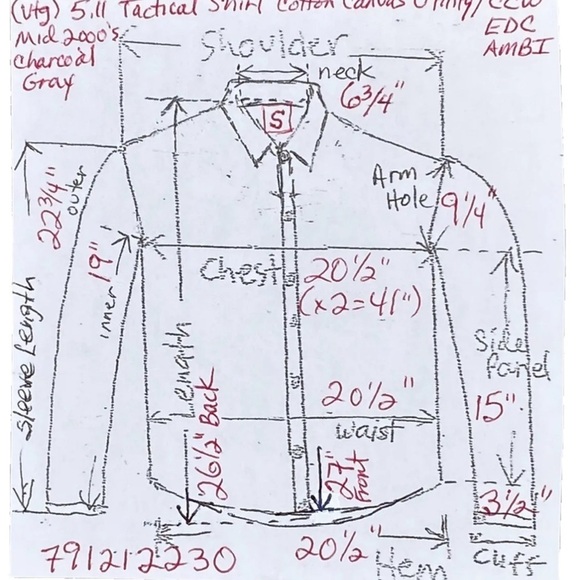 (Vtg) 5.11 Tactical Shirt Cotton Canvas Utility/CCW
Mid 2000's EDC
Charcoal AMBI
Gray
Shoulder
neck
6 3/4"
S
Arm
Hole 9 1/4"
22 3/4"
outer
19"
inner
Sleeve Length
Chest 20 1/2"
(x2=41")
Length
26 1/2" Back
Side
Panel
15"
20 1/2"
waist
27"
Front
3 1/2"
Cuff
20 1/2"
Hem
791212230